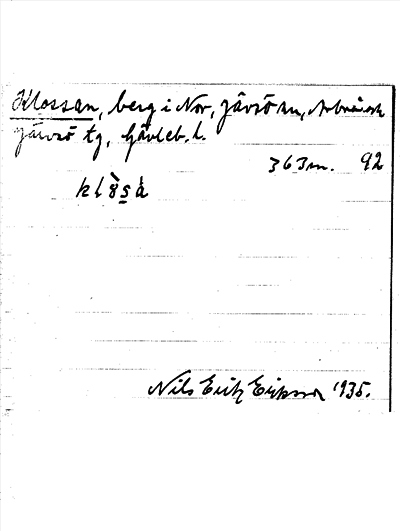 Klossan, berg i Nor, Järvsö sn, Arbrå och
Järvsö tg, Gävleb. l.
363 m. 92
Nils Erik Eriksson 1935.